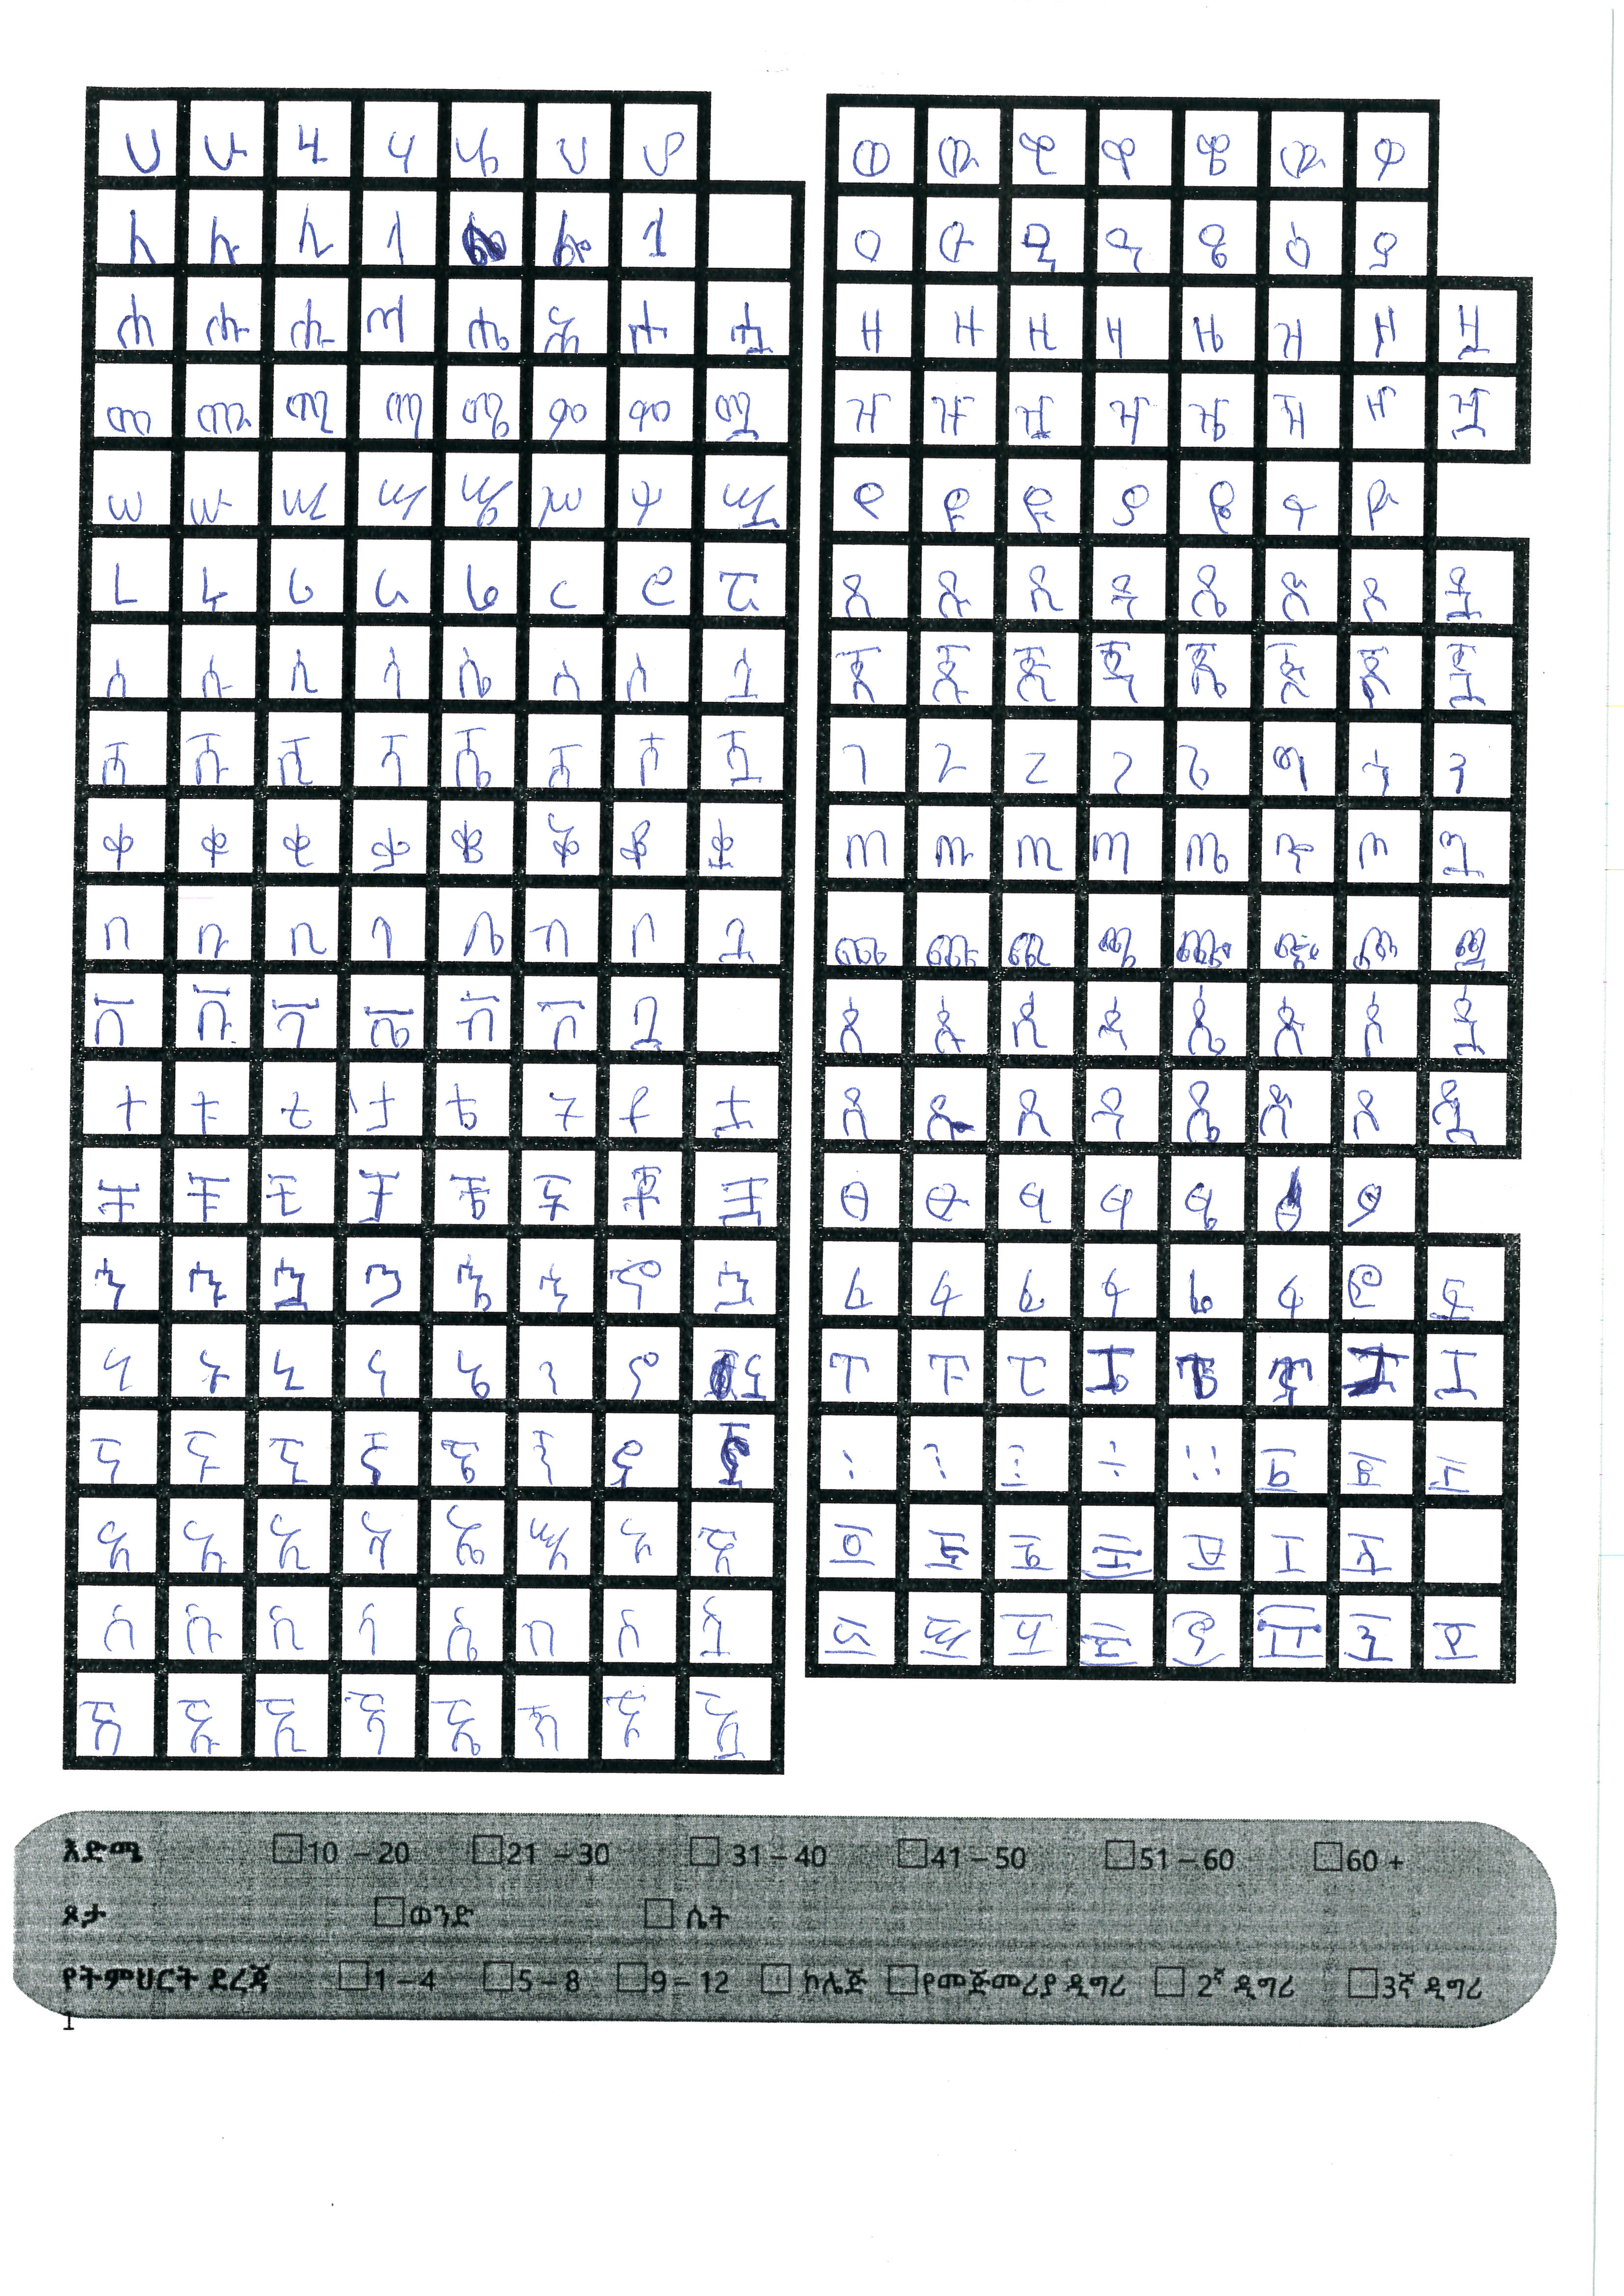 ሀ ሁ ሂ ሃ ሄ ህ ሆ
ለ ሉ ሊ ላ ሎ
ሐ ሑ ሒ ሓ ሔ ሕ ሖ ሗ
መ ሙ ሚ ማ ሜ ም ሞ ሟ
ሠ ሡ ሢ ሣ ሤ ሥ ሦ ሧ
ረ ሩ ሪ ራ ሬ ር ሮ ሯ
ሰ ሱ ሲ ሳ ሴ ስ ሶ ሷ
ሸ ሹ ሺ ሻ ሼ ሽ ሾ ሿ
ቀ ቁ ቂ ቃ ቄ ቅ ቆ ቋ
በ ቡ ቢ ባ ቤ ብ ቦ ቧ
ቨ ቩ
ተ ቱ ቲ ታ ቴ ት ቶ ቷ
ቸ ቹ ቺ ቻ ቼ ች ቾ ቿ
ኀ ኁ ኃ ኄ ኅ ኆ ኋ
ነ ኑ ኒ ና ኔ ን ኖ ኗ
ኘ ኙ ኚ ኛ ኜ ኝ ኞ ኟ
አ ኡ ኢ ኣ ኤ እ ኦ ኧ
ከ ኩ ኪ ካ ኬ ክ ኮ ኳ
ኸ ኹ ኺ ኻ ኼ ኽ ኾ
ወ ዉ ዊ ዋ ዌ ው ዎ
ዐ ዑ ዒ ዓ ዔ ዕ ዖ
ዘ ዙ ዚ ዛ ዜ ዝ ዞ ዟ
ዠ ዡ ዢ ዣ ዤ ዥ ዦ ዧ
የ ዩ ዪ ያ ዬ ይ ዮ
ደ ዱ ዲ ዳ ዴ ድ ዶ ዷ
ጀ ጁ ጂ ጃ ጄ ጅ ጆ ጇ
ገ ጉ ጊ ጋ ጌ ግ ጎ
ጠ ጡ ጢ ጣ ጤ ጥ ጦ ጧ
ጨ ጩ ጪ ጫ ጬ ጭ ጮ ጯ
ጰ ጱ ጲ ጳ ጴ ጵ ጶ ጷ
ጸ ጹ ጺ ጻ ጼ ጽ ጾ ጿ
ፀ ፁ ፂ ፃ ፄ ፆ
ፈ ፉ ፊ ፋ ፌ ፍ ፎ ፏ
ፐ ፑ ፒ
እድሜ 10 – 20 21 – 30 31 – 40 41 – 50 51 – 60 60 +
ጾታ ወንድ ሴት
የትምህርት ደረጃ 1 – 4 5 – 8 9 – 12 ኮሌጅ የመጀመሪያ ዲግሪ 2ኛ ዲግሪ 3ኛ ዲግሪ
1